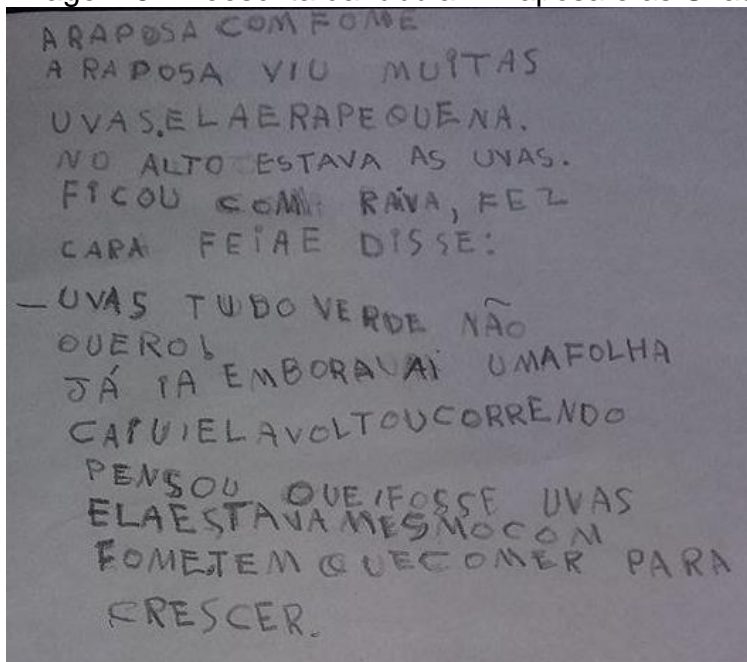 ARAPOSA COM FOME
A RAPOSA VIU MUITAS
UVAS.ELAERAPEQUENA.
NO ALTO ESTAVA AS UVAS.
FICOU COM RAIVA, FEZ
CARA FEIAE DISSE:
—UVAS TUDO VERDE NÃO
QUERO!
JÁ IA EMBORA, AI UMAFOLHA
CAIU,ELAVOLTOUCORRENDO
PENSOU QUE FOSSE UVAS
ELAESTAVAMESMOCOM
FOME.TEM QUECOMER PARA
CRESCER.